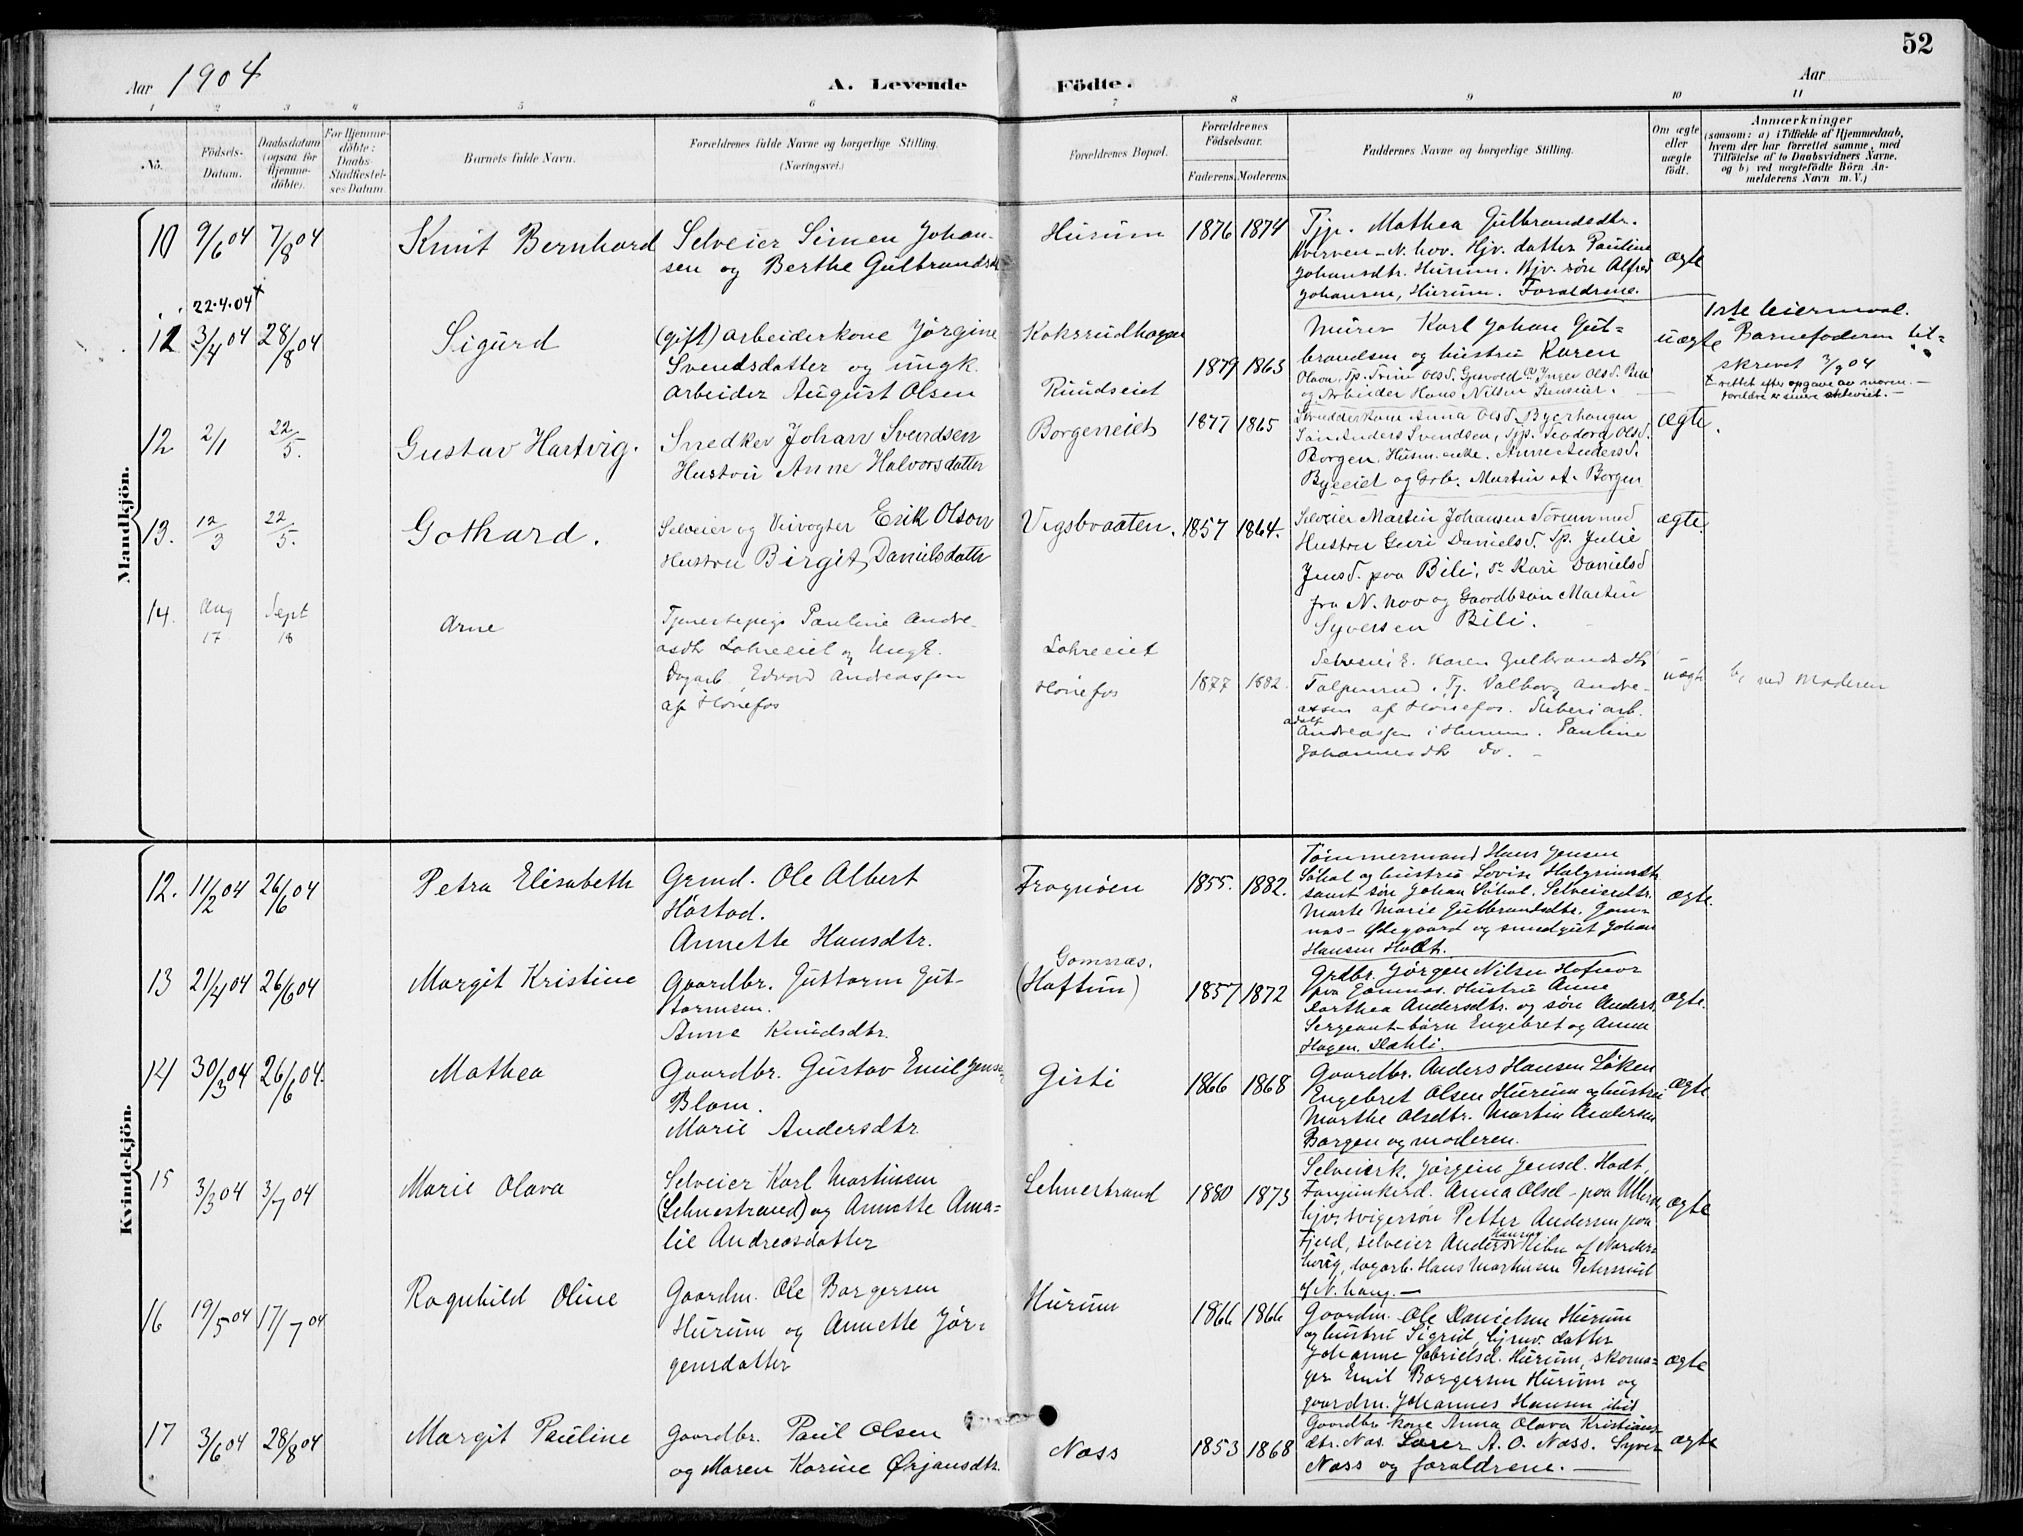 52
Aar 1904
A. Levende Födte.
Aar
1 2 3 4 5 6 7 8 9 10 11
No.
Födsels-Datum.
Daabsdatum (ogsaa for Hjemmedöbte).
For Hjemmedöbte: Daabs-Stadfæstelses Datum.
Barnets fulde Navn.
Forældrenes fulde Navne og borgerlige Stilling. (Næringsvei.)
Forældrenes Bopæl.
Forældrenes Födselsaar.
Faderens. Moderens.
Faddernes Navne og borgerlige Stilling.
Om ægte eller uægte födt.
Anmærkninger
(saasom: a) i Tilfælde af Hjemmedaab, hvem der har forrettet samme, med Tilföielse af to Daabsvidners Navne. og b) ved uægtefödte Börn Anmelderens Navn m. V.)
Mandkjön.
10 9/6 04 7/8 04 Knut Bernhard
Selveier Simen Johan-
sen og Berthe Gulbrandsd.
Hurum 1876 1874
Tjp. Mathea Gulbrandsdtr.
Kverven - N. hov. Hjv. datter Pauline
Johansdtr. Hurum. Hjv. søn Alfred
Johansen, Hurum. Forældrene.
ægte
22.4.04 x
11 3/4 04 28/8 04 Sigurd
(gift) arbeiderkone Jørgine
Svendsdatter og ungk.
arbeider August Olsen
Koksrudhagen
Ruudseiet
1879 1863
Murer Karl Johan Gul-
brandsen og hustru Karen
Olava.
og Arbeider Hans Nilsen
uægte
1ste leiermaal.
Barnefaderen til-
skrevet 3/9 04
x rettet efter opgave av moren. -
foreldre er senere ektevied. -
12 2/1 22/5. Gustav Hartvig.
Snedker Johan Svendsen
Hustru Anne Halvorsdatter
Borgereiet 1877 1865
Skrædderkone Anna Olsd. Byerhaugen
Søn Anders Svendsen, Pp. Teodora Olsd.
Borgen. Husm. enke. Anne Andersd.
Byeeiet og Grb. Martin A. Borgen
ægte.
13. 12/3 22/5. Gothard.
Selveier og Veivogter Erik Olson
Hustru Birgit Danielsdatter
Vegsbraaten. 1857 1864.
Selveier Martin Johansen Sørum med
Hustru Guri Danielsd. Sp. Julie
Jensd. paa Bili, do Kari Danielsd
fra N. hov og Gaardbsøn Martin
Syversen Bili.
ægte.
14. Aug 17 Sept 18 Arne
Tjenestepige Pauline Andre-
asdtr Lohreeiet og Ungk.
Dagarb. Edvard Andreassen
af Hønefos
Lohreeiet
Hønefos
1877 1882.
Selveier E. Karen Gulbrandsdtr
Tolpinrud. Tj. Valborg Andre-
assen af Hønefos. Fabrikarb.
Adolf
Andreassen i Hurum. Pauline
Johannesdtr do. -
uægte
b, ved Moderen
Kvindekjön.
12. 11/2 04 26/6 04 Petra Elisabeth
Grmd. Ole Albert
Høstad.
Annette Hansdtr.
Frognøen 1855. 1882.
Tømmermand Hans Jensen
Løhol og hustru Lovise Helgesensdtr.
samt søn Johan Løhol. Selveierdtr.
Marte Marie Gulbrandsdtr. Gom-
næs - Ødegaard og smedgut Johan
Hansen Hodt.
ægte.
13 21/4 04 26/6 04 Margit Kristine
Gaardbr. Guttorm Gut-
tormsen.
Anne Knudsdtr.
Gomnæs.
(Haftun) 1857 1872
Grdbr. Jørgen Nilsen Hofnor
paa Gomnæs. Hustru Anne
Dorthea Andersdtr. og søn Anders.
Sergeant-børn Engebret og Anna
Hagen. Dæhli.
ægte.
14 30/3 04 26/6 04. Mathea
Gaardbr. Gustav Emil Jensen
Blom.
Marie Andersdtr.
Gisti 1866 1868
Gaardbr. Anders Hansen Løken
Engebret Olsen Hurum og hustru
Marthe Olsdtr. Martin Andersen
Borgen og moderen.
ægte
15 3/3 04 3/7 04 Marie Olava
Selveier Karl Martinsen
(Lehnestrand) og Annette Ama-
lie Andreasdatter
Lehnestrand 1880 1873
Selveierk. Jørgine Jensd. Hodt,
Anna Olsd - paa Ullern,
hjv. svigersøn Petter Andersen paa
Fjeld, selveier Anders Hansen af Norder-
houg, dagarb. Hans Martinsen Petersrud
af N. haug. -
ægte
16 19/5 04 17/7 04 Ragnhild Oline
Gaardm. Ole Borgersen
Hurum og Annette Jør-
gensdatter
Hurum 1866 1866
Gaardm. Ole Danielsen Hurum
og hustru Sigrid, hjmv. datter
Johanne Gabrielsd. Hurum, skoma-
ger Emil Borgersen Hurum og
gaardm. Johannes Hansen ibid
ægte
17 3/6 04 28/8 04 Margit Pauline
Gaardbr. Paul Olsen
og Maren Karine Ørjansdtr.
Næss 1853 1868
Gaardbr. kone Anna Olava Kristians-
dtr. Næs. Lærer A. O. Næss. Syver
Næss og forældrene. -
ægte